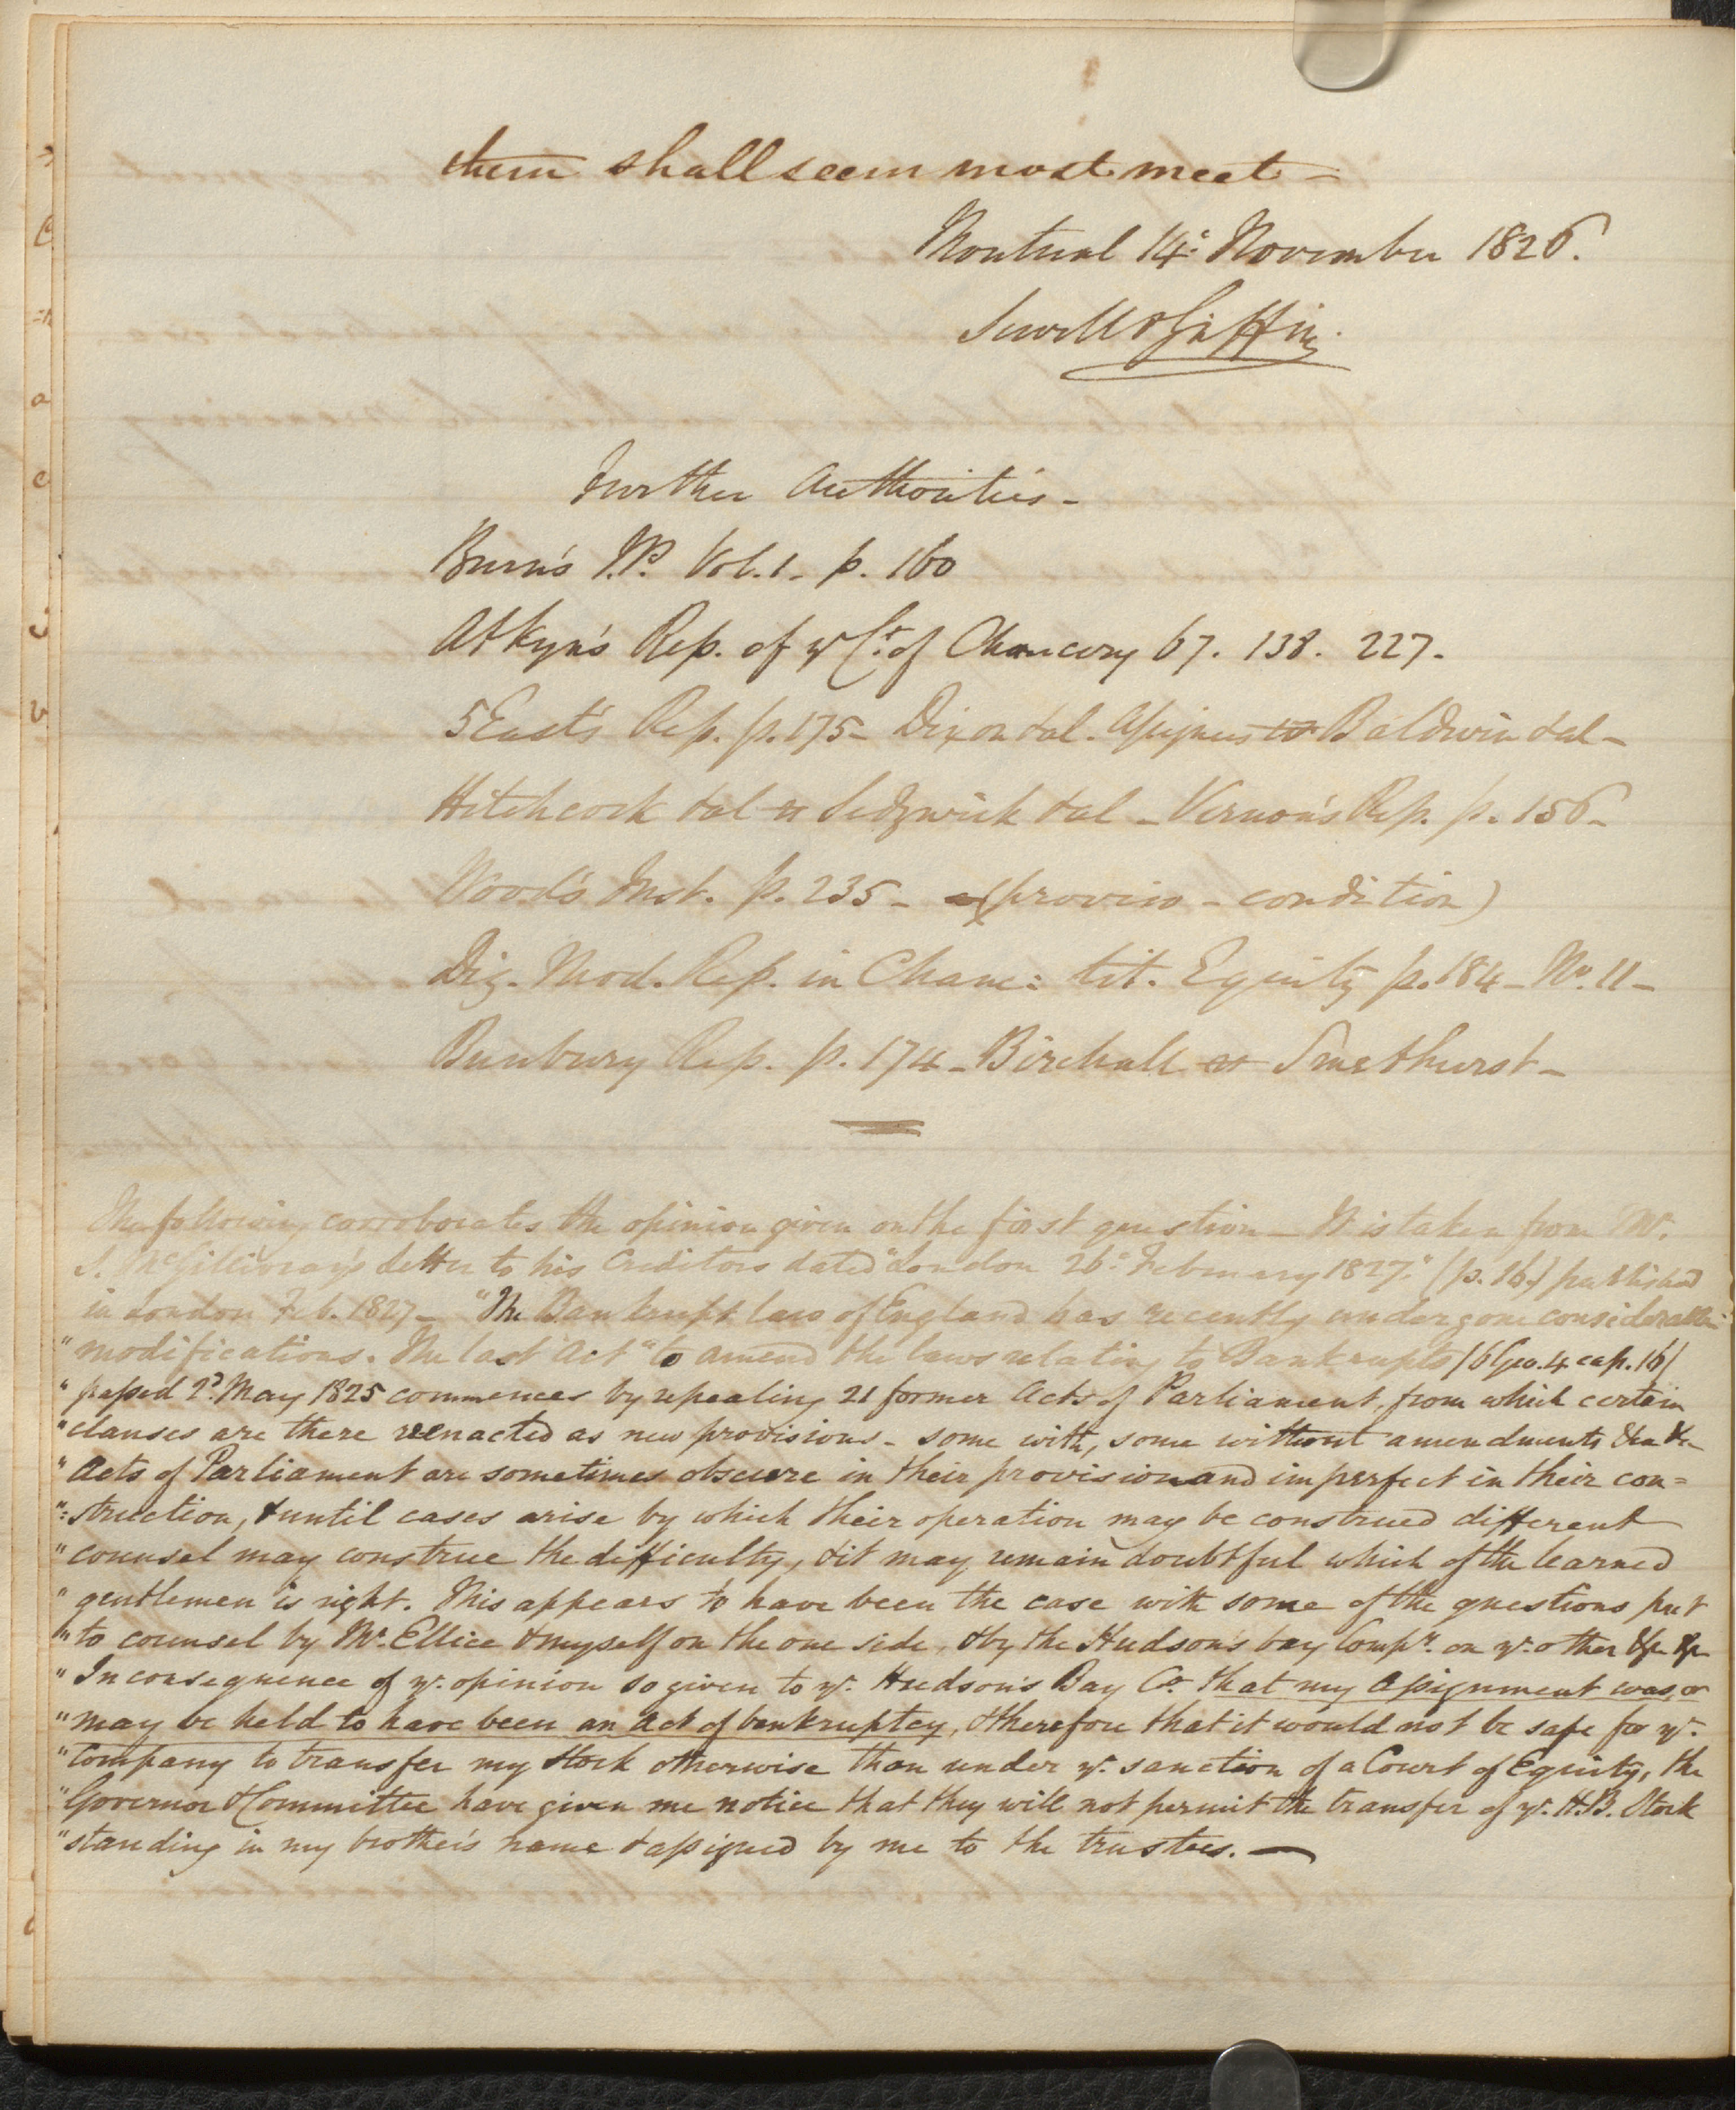 them shall seem most meet –
Montreal 14th November 1826.
Sewell & Griffin.
Further Authorities –
Burn's J.P. Vol. 1 – p. 160
Atkyn's Rep. of ye Ct. of Chancery 67. 138. 227.
5 East's Rep. p. 175 – Dixon & al. Assignees vs Baldwin & al –
Hitchcock & al vs Sedgwick & al – Vernon's Rep. p. 156 –
Wood's Inst. p. 235 – (proviso – condition)
Dig. Mod. Rep. in Chanc: tit. Equity p. 184 – No. 11 –
Bunbury Rep. p. 174 – Birchall vs Smethurst –
The following corroborates the opinion given on the first question – It is taken from Mr.
S. McGillivray's letter to his Creditors dated "London 26th February 1827." (p. 16.) published
in London Feb. 1827 – "The Bankrupt law of England has recently undergone considerable
" modifications. The last Act "to amend the laws relating to Bankrupts (6 Geo. 4 cap. 16)
" passed 2d. May 1825 commences by repealing 21 former Acts of Parliament, from which certain
" clauses are there reenacted as new provisions – some with, some without amendments &c &c
" Acts of Parliament are sometimes obscure in their provision and imperfect in their con=
"=struction, & until cases arise by which their operation may be construed different
" counsel may construe the difficulty, & it may remain doubtful which of the learned
" gentlemen is right. This appears to have been the case with some of the questions put
" to counsel by Mr. Ellice & myself on the one side, & by the Hudson's bay Compy. on ye. other &c &c
" In consequence of ye. opinion so given to ye. Hudson's Bay Co. that my assignment was, or
" may be held to have been an act of bankruptcy, & therefore that it would not be safe for ye.
" Company to transfer my stock otherwise than under ye. sanction of a Court of Equity, the
" Governor & Committee have given me notice that they will not permit the transfer of ye. H.B. Stock
" standing in my brother's name & assigned by me to the trustees. —